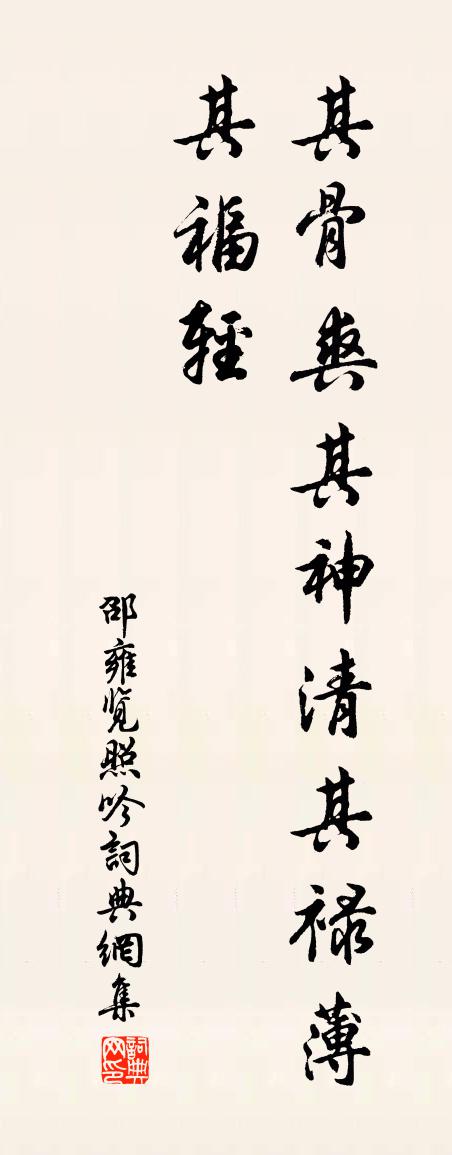 其骨爽其神清其禄薄
其福輕
邵雍览照吟詞典網集
詞典网印